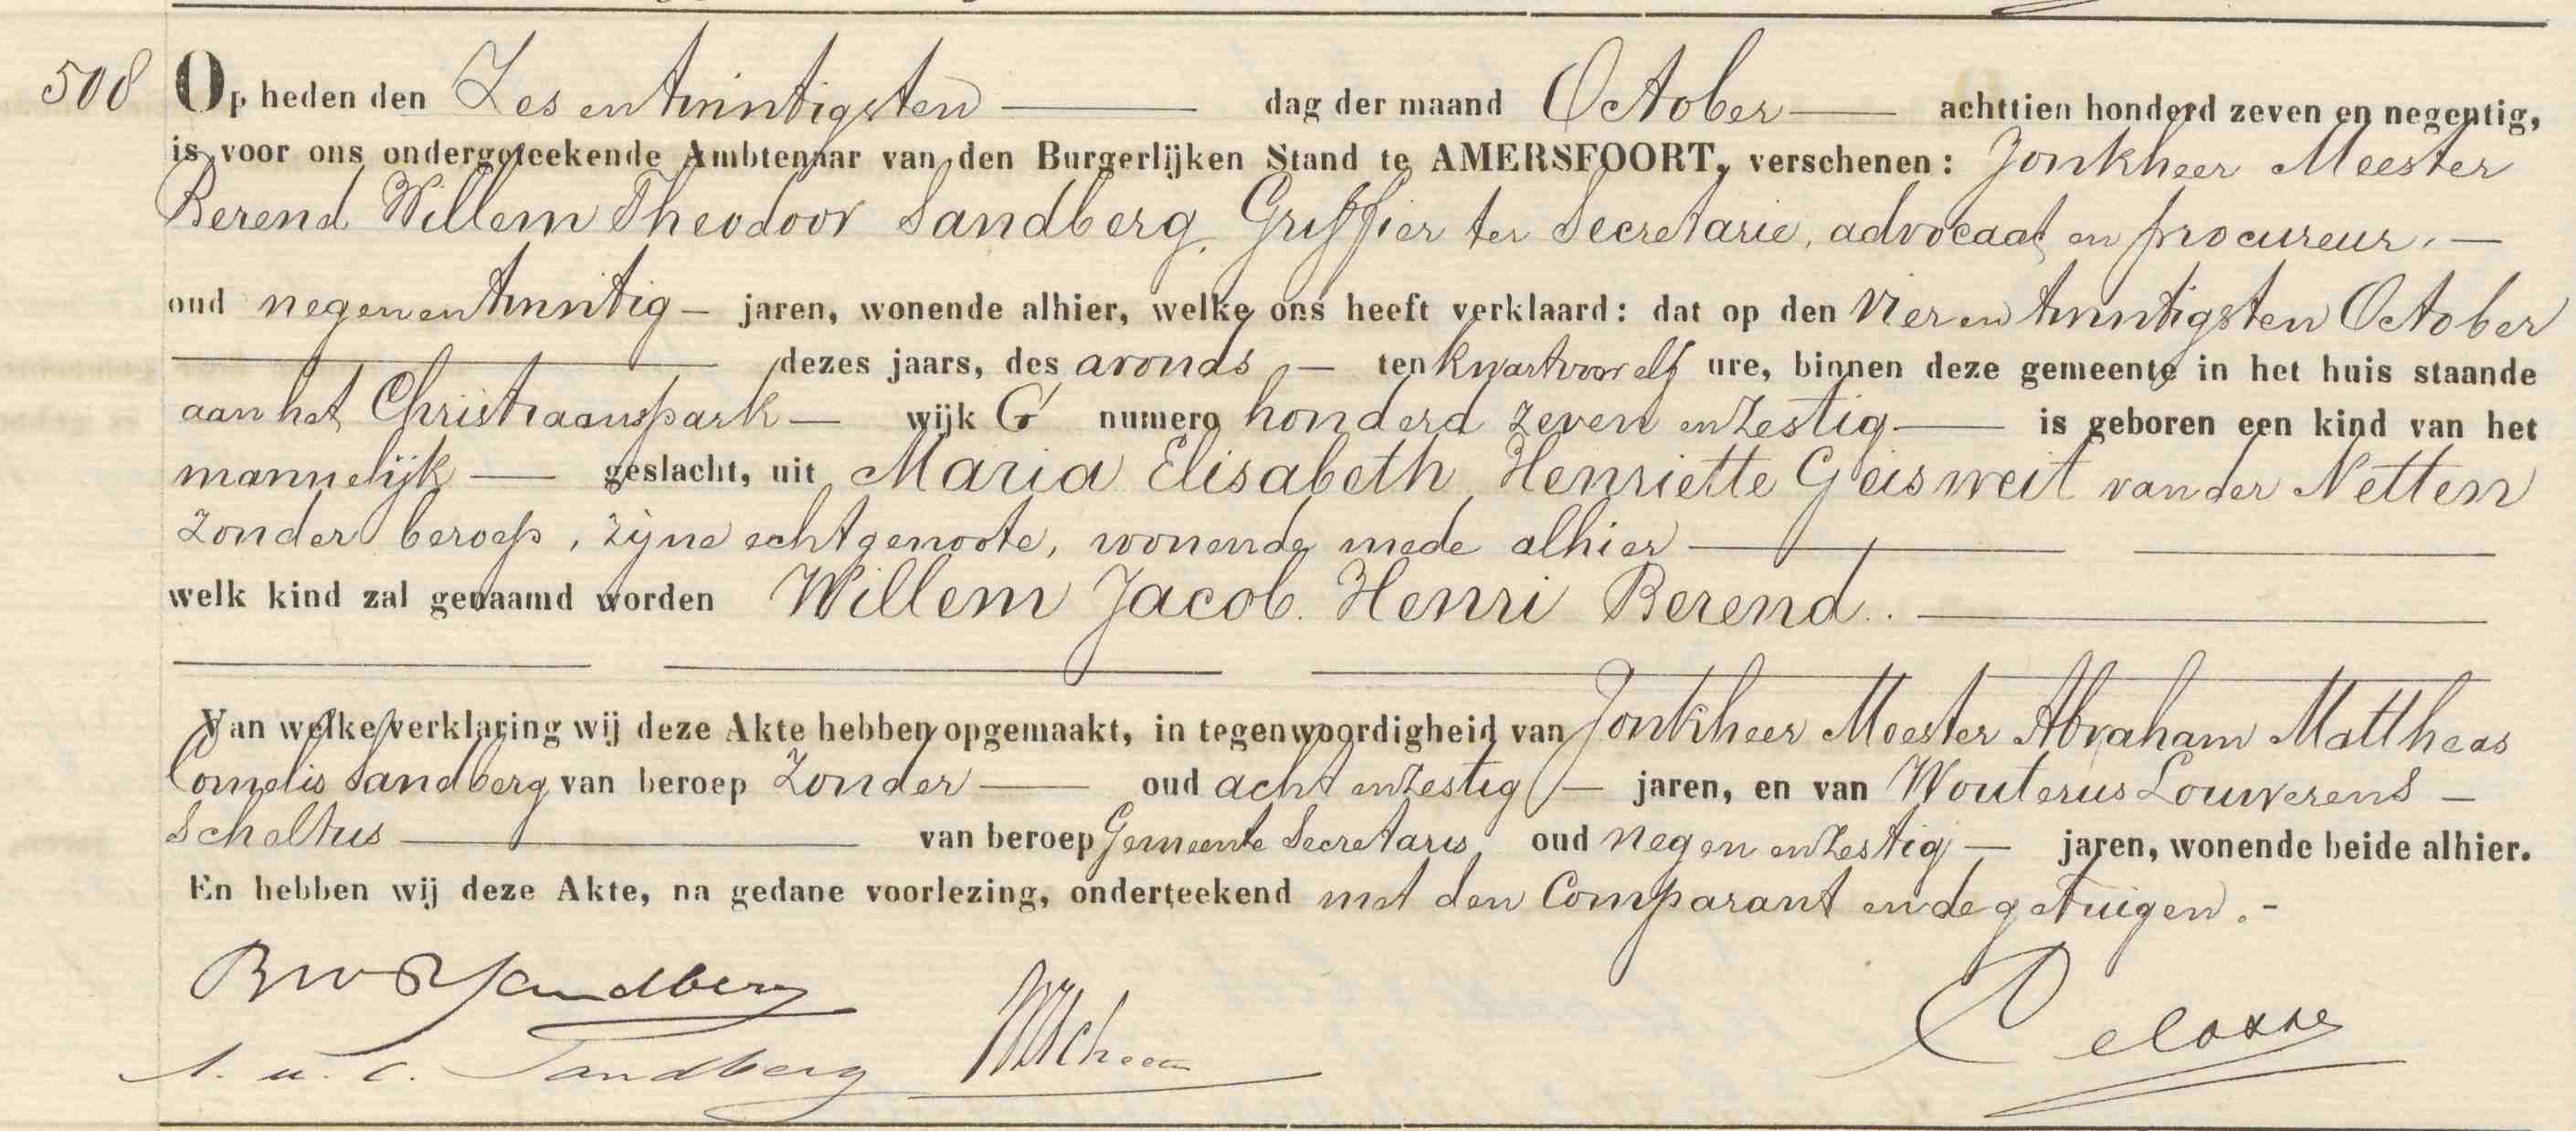 508 Op heden den Zes en twintigsten dag der maand October achttien honderd zeven en negentig,
is voor ons ondergeteekende Ambtenaar van den Burgerlijken Stand te AMERSFOORT, verschenen: Jonkheer Meester
Berend Willem Theodoor Sandberg, Griffier ter Secretarie, advocaat en procureur.
oud negen en twintig jaren, wonende alhier, welke ons heeft verklaard: dat op den vier en twintigsten October
dezes jaars, des avonds ten kwart voor elf ure, binnen deze gemeente in het huis staande
aan het Christiaanspark wijk G numero honderd zeven en zestig is geboren een kind van het
mannelijk geslacht, uit Maria Elisabeth Henriette Geisweit van der Netten
zonder beroep, zijne echtgenoote, wonende mede alhier
welk kind zal genaamd worden Willem Jacob Henri Berend.
Van welke verklaring wij deze Akte hebben opgemaakt, in tegenwoordigheid van Jonkheer Meester Abraham Mattheas
Cornelis Sandberg van beroep zonder oud acht en zestig jaren, en van Wouterus Louwerens
Scheltus van beroep Gemeente Secretaris, oud negen en zestig jaren, wonende beide alhier.
En hebben wij deze Akte, na gedane voorlezing, onderteekend met den Comparant en de getuigen.
BWTSandberg
A. M. C. Sandberg